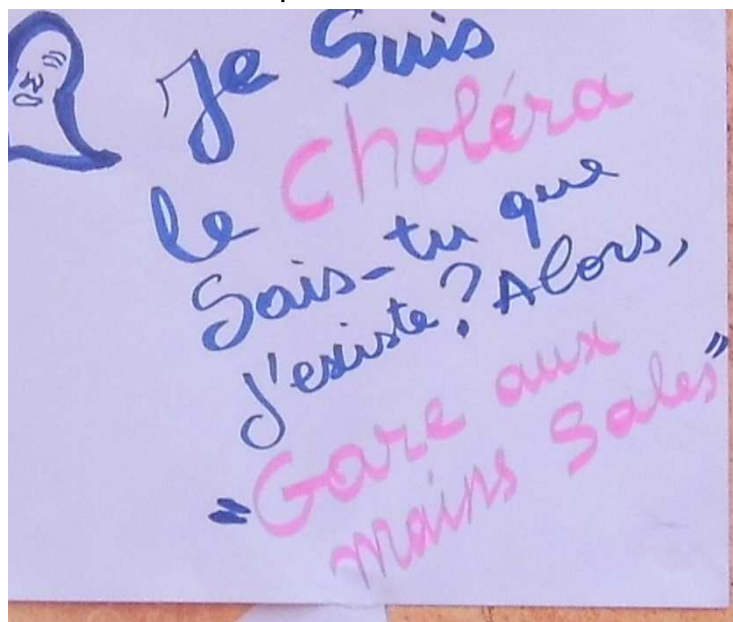 Je Suis
le Choléra
Sais-tu que
J'existe? Alors,
"Gare aux
mains Sales"